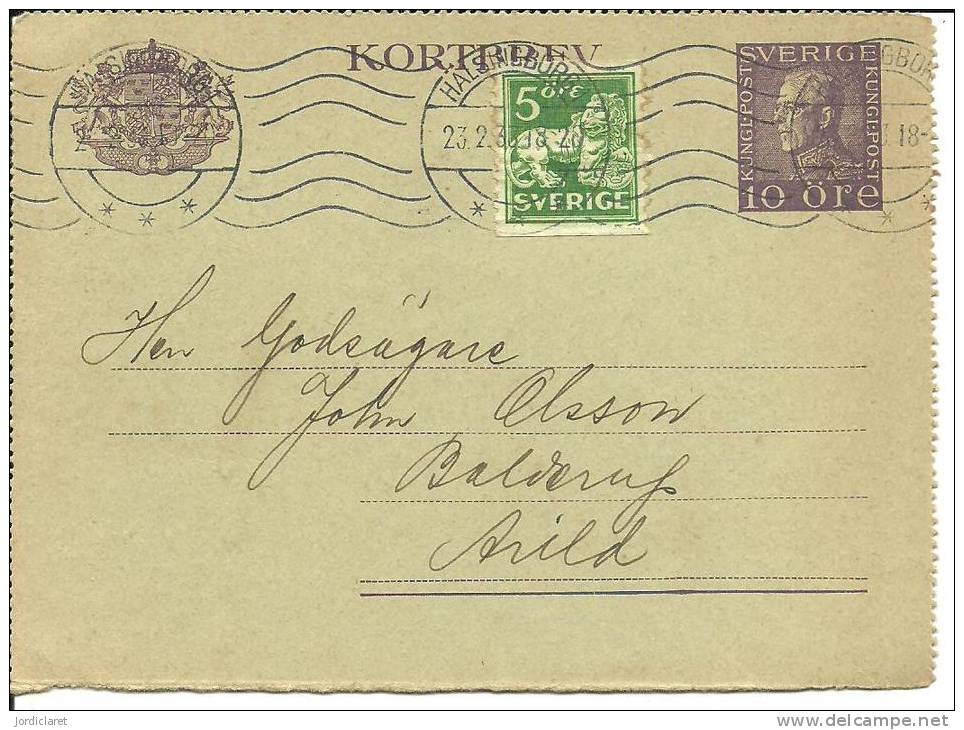 KORTBREV
HÄLSINGBORG
23.2.3 18-20
5 ÖRE
SVERIGE
SVERIGE
KUNGL·POST
KUNGL·POST
10 ÖRE
18-
Herr Godsägare
John Olsson
Balderup
Arild
jordiclaret
www.delcampe.net